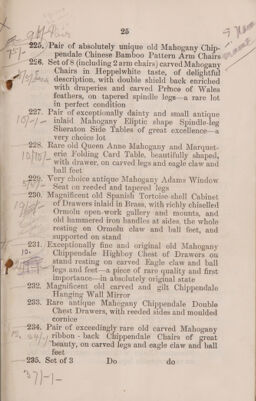 25
225. Pair of absolutely unique old Mahogany Chip-
pendale Chinese Bamboo Pattern Arm Chairs
226. Set of 8 (including 2 arm chairs) carved Mahogany
Chairs in Heppelwhite taste, of delightful
description, with double shield back enriched
with draperies and carved Prince of Wales
feathers, on tapered spindle legs—a rare lot
in perfect condition
227. Pair of exceptionally dainty and small antique
inlaid Mahogany Eliptic shape Spindle-leg
Sheraton Side Tables of great excellence—a
very choice lot
228. Rare old Queen Anne Mahogany and Marquet-
erie Folding Card Table, beautifully shaped,
with drawer, on carved legs and eagle claw and
ball feet
229. Very choice antique Mahogany Adams Window
Seat on reeded and tapered legs
230. Magnificent old Spanish Tortoise-shell Cabinet
of Drawers inlaid in Brass, with richly chiselled
Ormolu open-work gallery and mounts, and
old hammered iron handles at sides, the whole
resting on Ormolu claw and ball feet, and
supported on stand
231. Exceptionally fine and original old Mahogany
Chippendale Highboy Chest of Drawers on
stand resting on carved Eagle claw and ball
legs and feet—a piece of rare quality and first
importance—in absolutely original state
232. Magnificent old carved and gilt Chippendale
Hanging Wall Mirror
233. Rare antique Mahogany Chippendale Double
Chest Drawers, with reeded sides and moulded
cornice
234. Pair of exceedingly rare old carved Mahogany
ribbon-back Chippendale Chairs of great
beauty, on carved legs and eagle claw and ball
feet
235. Set of 3 Do do
37/-/-